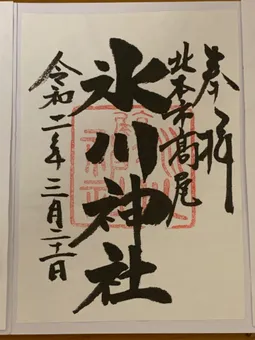 奉拝
北本市高尾
氷川神社
令和二年三月二十一日